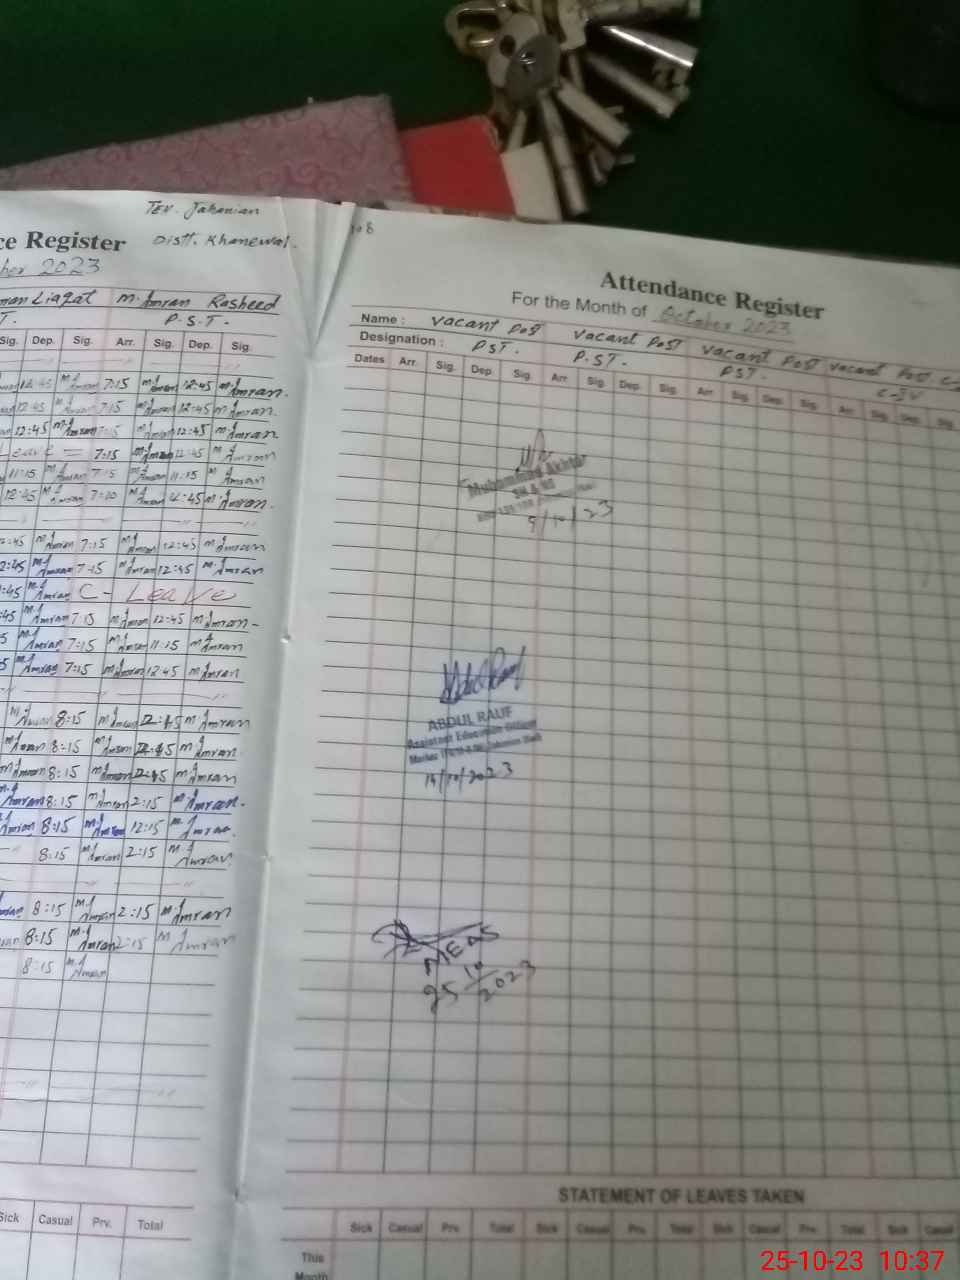 Teh. Jahanian
Distt. Khanewal.
ce Register
ber 2023
man Liaqat M. Imran Rasheed
T. P.S.T.
Sig. Dep. Sig. Arr. Sig. Dep. Sig.
12:45 M.Imran 7:15 M.Imran 12:45 M.Imran.
12:45 M.Imran 7:15 M.Imran 12:45 M.Imran.
12:45 M.Imran 7:15 M.Imran 12:45 M.Imran
Leave = 7:15 M.Imran 12:45 M.Imran
11:15 M.Imran 7:15 M.Imran 11:15 M.Imran
12:45 M.Imran 7:10 M.Imran 12:45 M.Imran.
2:45 M.Imran 7:15 M.Imran 12:45 M.Imran
2:45 M.Imran 7:15 M.Imran 12:45 M.Imran
:45 M.Imran C- Leave
:45 M.Imran 7:15 M.Imran 12:45 M.Imran-
5 M.Imran 7:15 M.Imran 11:15 M.Imran
5 M.Imran 7:15 M.Imran 12:45 M.Imran
M.Imran 8:15 M.Imran M.Imran
M.Imran 8:15 M.Imran M.Imran.
M.Imran 8:15 M.Imran M.Imran
M.Imran 8:15 M.Imran 2:15 M.Imran.
M.Imran 8:15 M.Imran 12:15 M.Imran.
8:15 M.Imran 2:15 M.Imran
M.Imran 8:15 M.Imran 2:15 M.Imran
M.Imran 8:15 M.Imran 2:15 M.Imran
8:15 M.Imran
Sick Casual Prv. Total
Attendance Register
For the Month of October 2023
Name : Vacant Post Vacant Post Vacant Post Vacant Post
Designation : PST. P.ST. PST. C-IV
Dates Arr. Sig. Dep. Sig. Arr. Sig. Dep. Sig. Arr. Sig. Dep. Sig. Arr. Sig. Dep. Sig.
Muhammad Akhtar
9/10/23
ABDUL RAUF
Assistant Education Officer
14/10/2023
MEAS
25 10
2023
STATEMENT OF LEAVES TAKEN
Sick Casual Prv. Total Sick Casual Prv. Total Sick Casual Prv. Total Sick Casual
This
Month
25-10-23 10:37